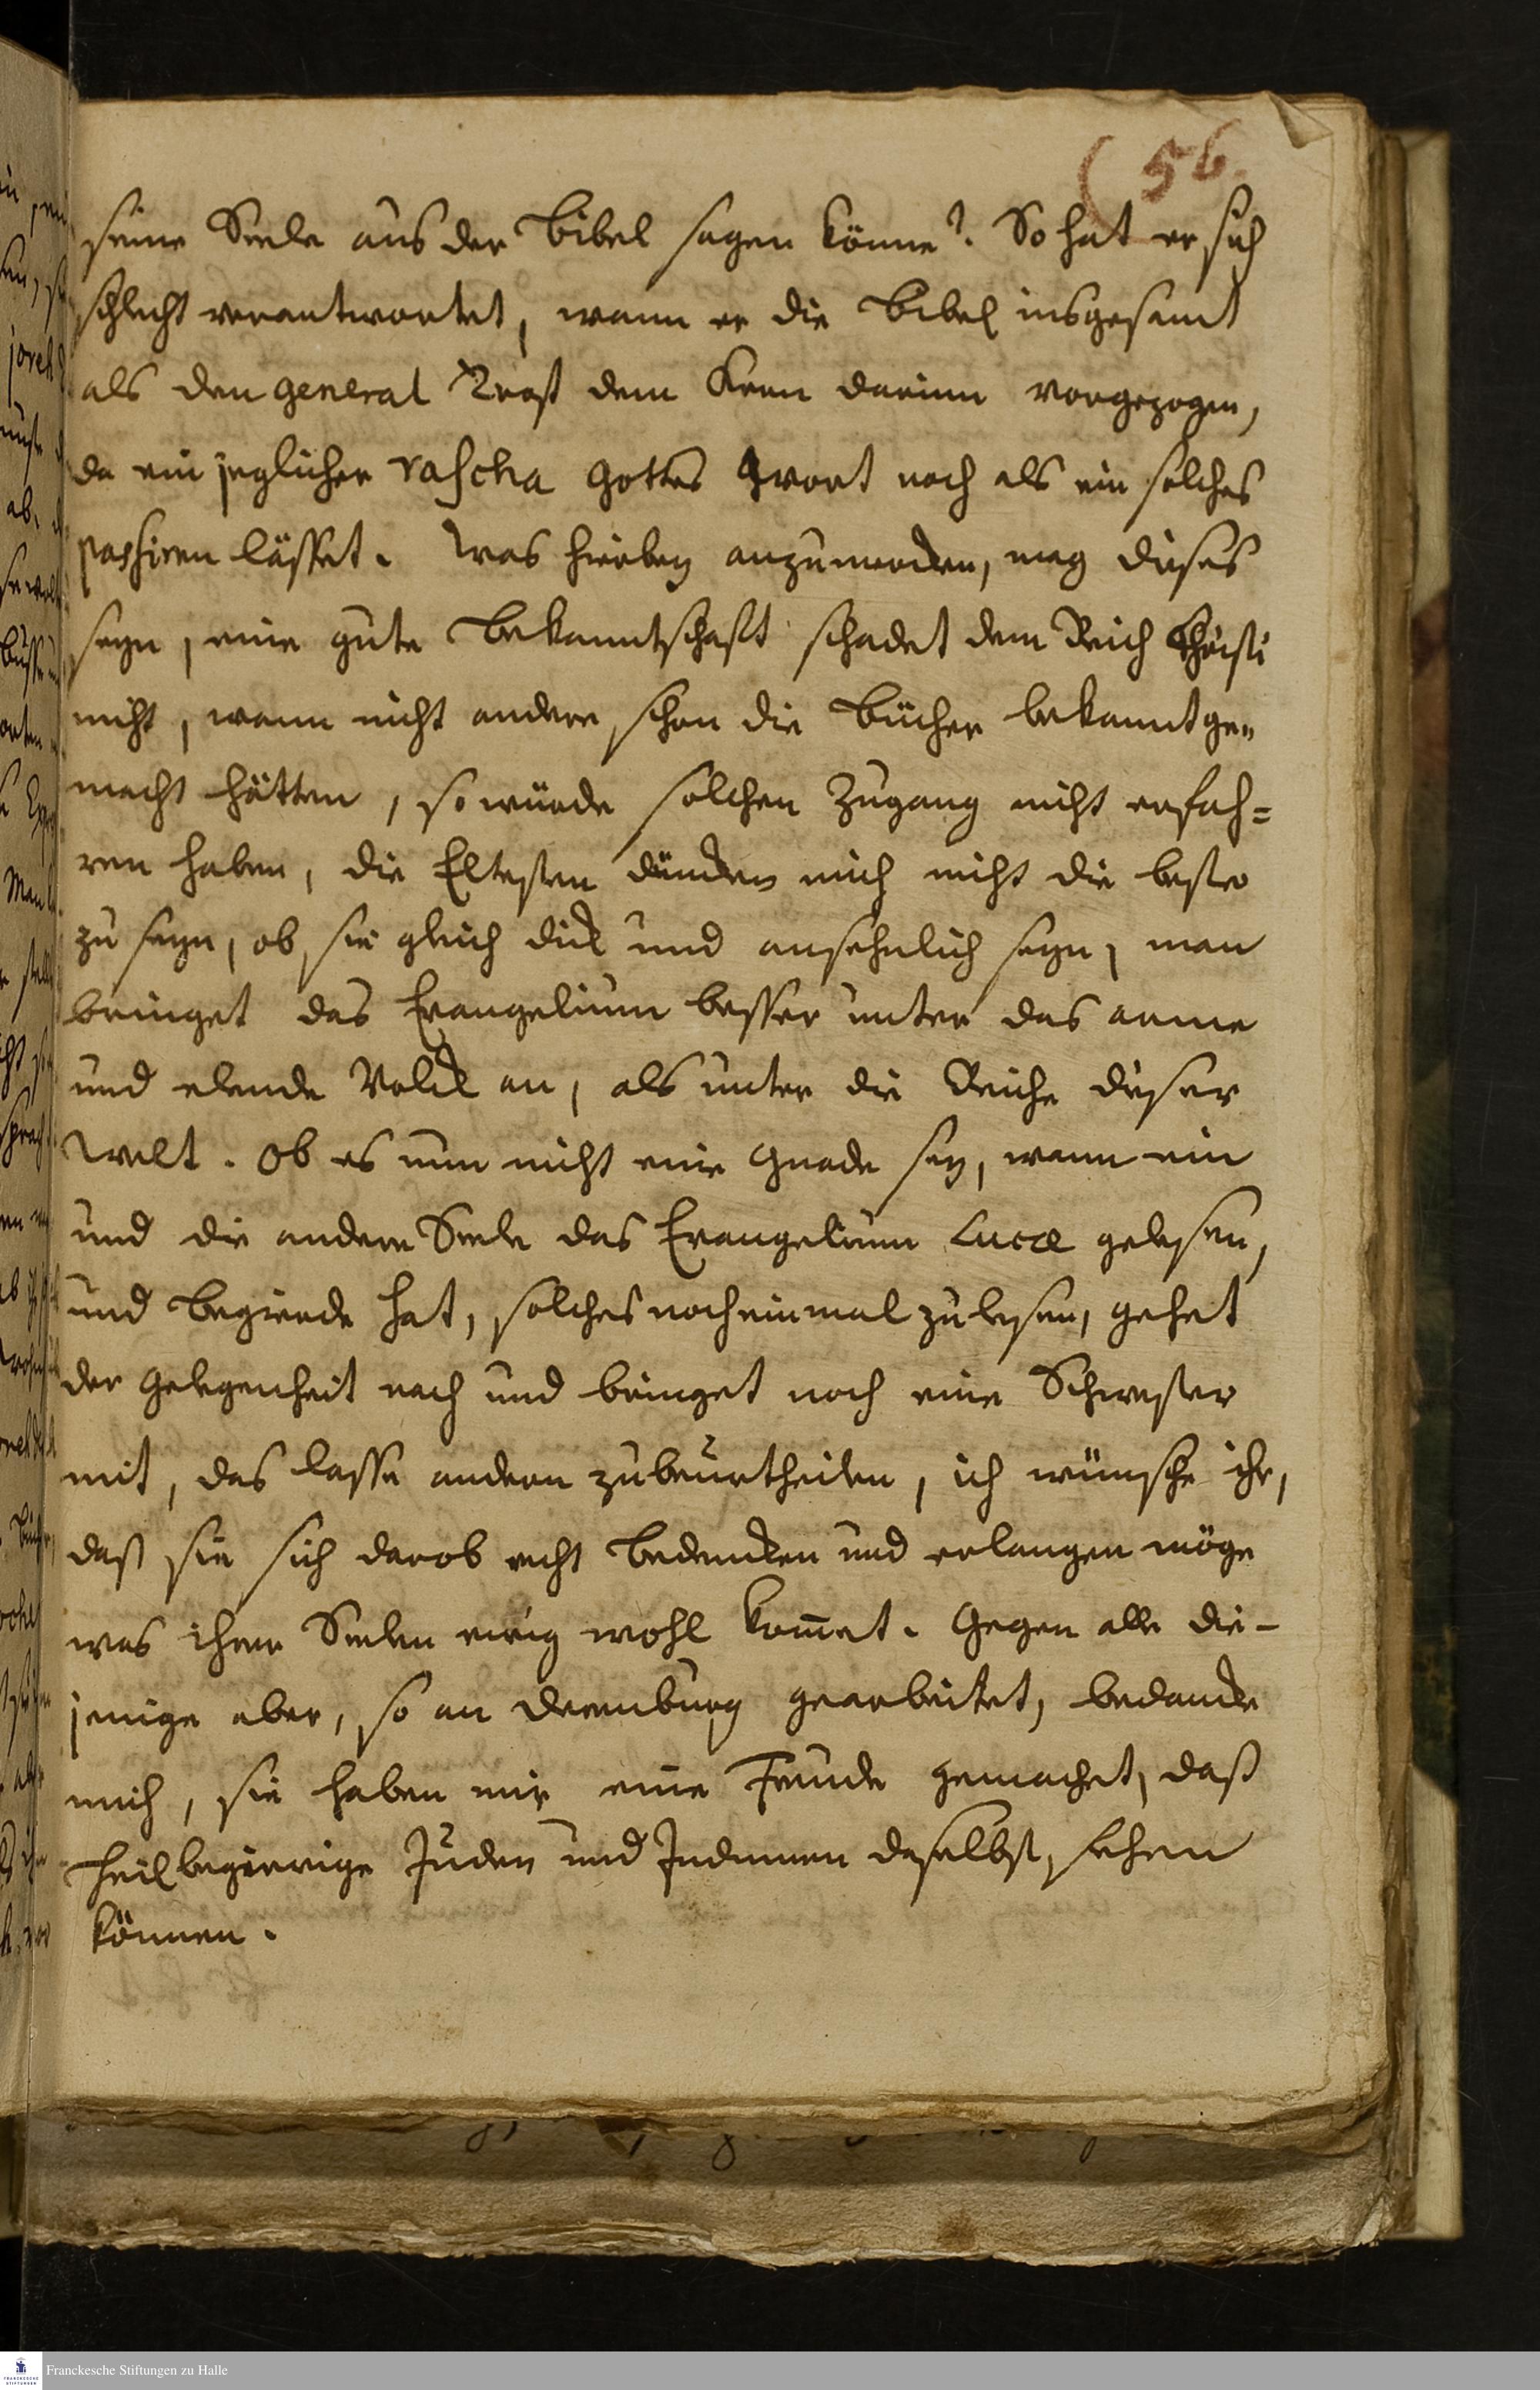 (56.
seine Seele aus der Bibel sagen könne? So hat er sich
schlecht verantwortet, wann er die Bibel insgesamt
als den general Trost dem Kern darinn vorgezogen,
da ein jeglicher rascha Gottes Wort noch als ein solches
passiren lässet. Was hierbey anzumercken, mag dieses
seyn, eine gute Bekanntschafft schadet dem Reich Christi
nicht, wann nicht andere schon die Bücher bekanntge„
macht hätten, so würde solchen Zugang nicht erfah=
ren haben, die Eltesten düncken mich nicht die beste
zu seyn, ob sie gleich dick und ansehnlich seyn, man
bringet das Evangelium besser unter das arme
und elende Volck an, als unter die Reiche dieser
Welt. Ob es nun nicht eine Gnade sey, wann ein
und die andere Seele das Evangelium Lucæ gelesen,
und Begierde hat, solches noch einmal zu lesen, gehet
der Gelegenheit nach und bringet noch eine Schwester
mit, das lasse andern zubeurtheilen, ich wünsche ihr,
daß sie sich darob recht bedencken und erlangen möge
was ihrer Seelen ewig wohl kom̅et. Gegen alle die-
jenige aber, so an Derenburg gearbeitet, bedancke
mich, sie haben mir eine Freude gemachet, daß
heilbegierige Juden und Judinnen daselbst, sehen
können.
Franckesche Stiftungen zu Halle